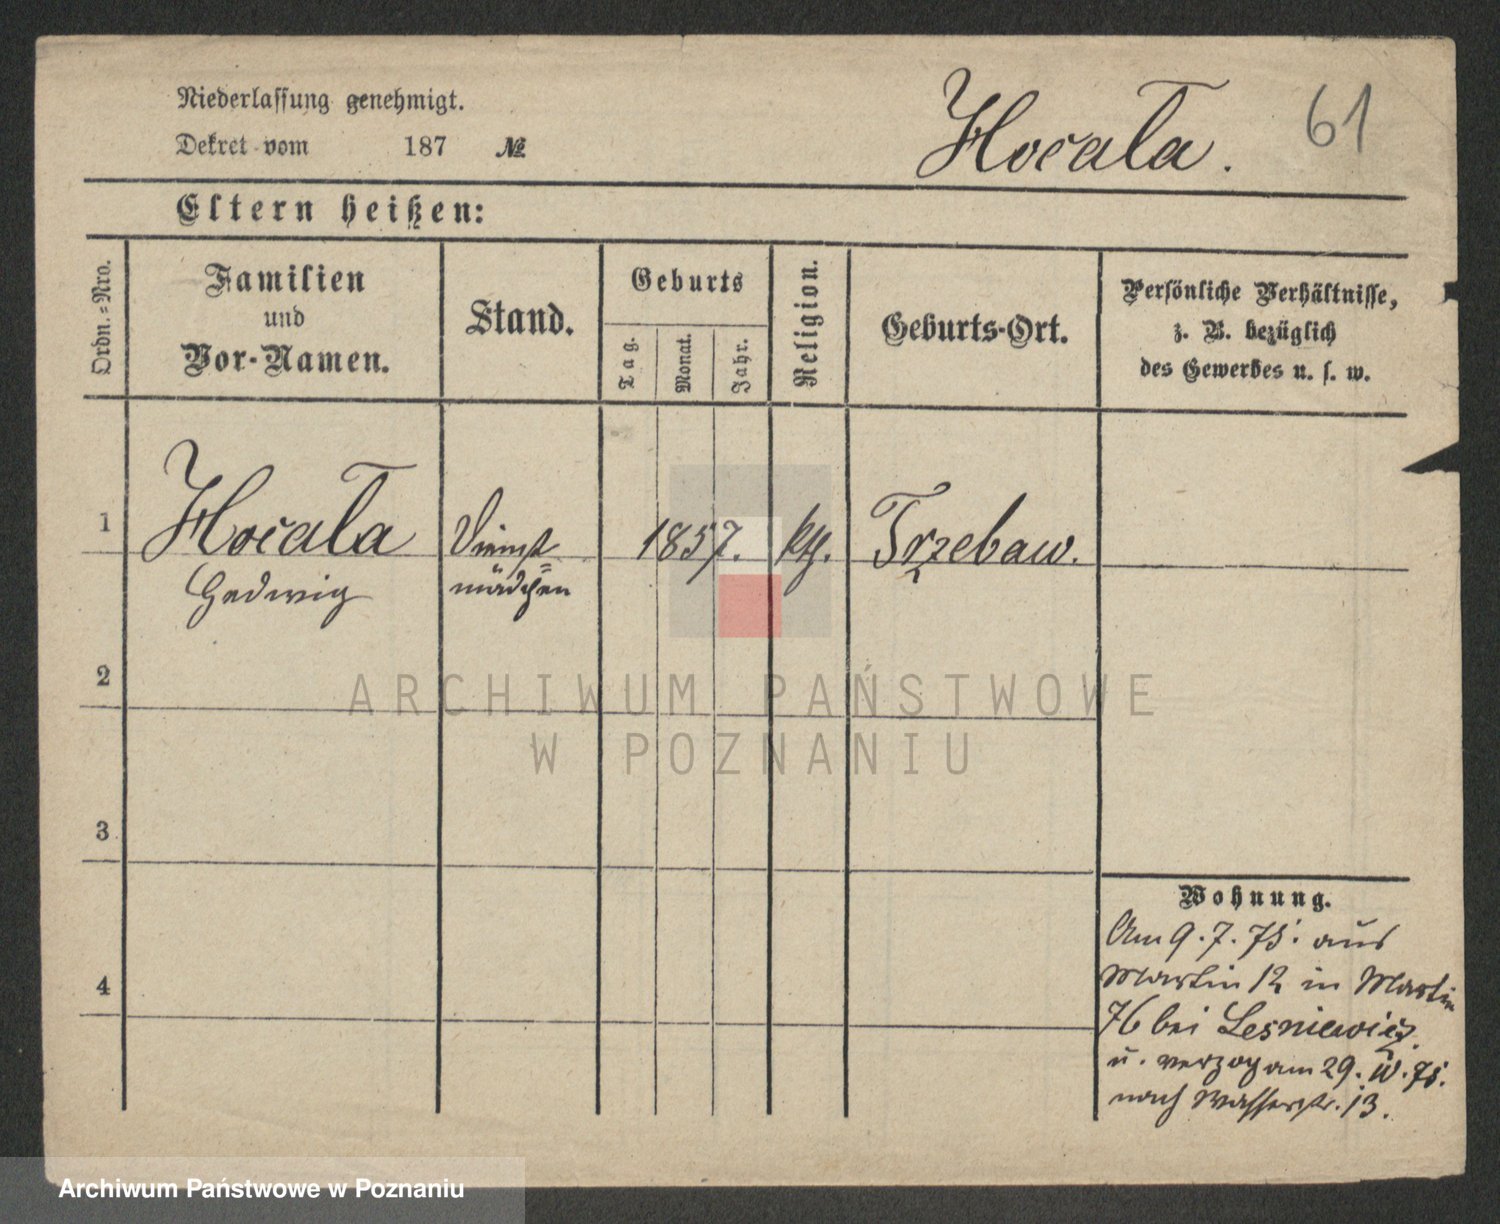 Niederlassung genehmigt.
Dekret vom 187 №
Hocała.
61
Eltern heißen:
Ordn.-Nro.
Familien
und
Vor-Namen.
Stand.
Geburts
Tag.
Monat.
Jahr.
Religion.
Geburts-Ort.
Persönliche Verhältnisse,
z. B. bezüglich
des Gewerbes u. s. w.
1
Hocała
Hedwig
Dienst
mädchen
1857.
kth.
Trzebaw.
2
3
4
Wohnung.
Am 9. 7. 75. aus
Martin 12 in Martin
76 bei Lesniewicz.
u. verzog am 29. 10. 75.
nach Wasserstr. 13.
ARCHIWUM PAŃSTWOWE
W POZNANIU
Archiwum Państwowe w Poznaniu